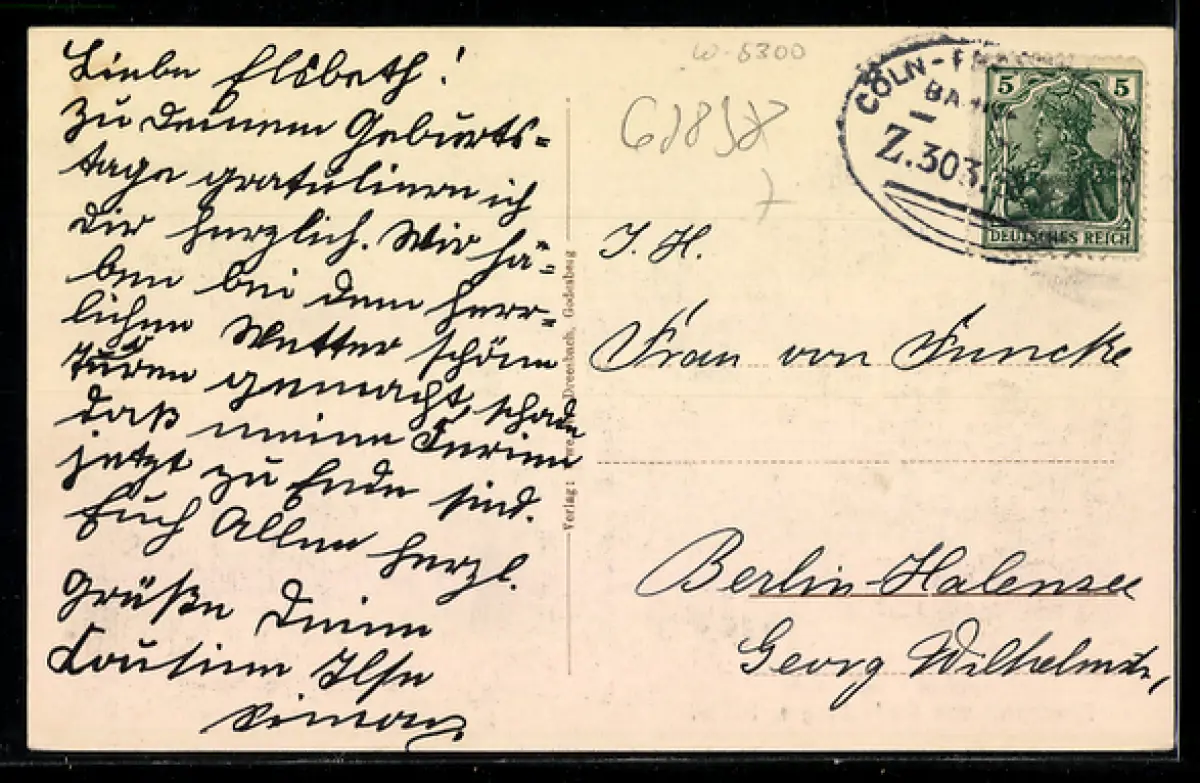 Liebe Elsbeth!
Zu Deinem Geburts=
tage gratuliere ich
Dir herzlich. Wir ha=
ben bei dem herr=
lichen Wetter schöne
Turen gemacht, schade
daß meine Ferien
jetzt zu Ende sind.
Euch Allen herzl.
Grüße Deine
Cousine Ilse
W-5300
CÖLN-F
BA
Z.303
5 5
DEUTSCHES REICH
Verlag: Dreesbach, Godesberg
I. H.
Frau von Funcke
Berlin-Halensee
Georg Wilhelmstr,